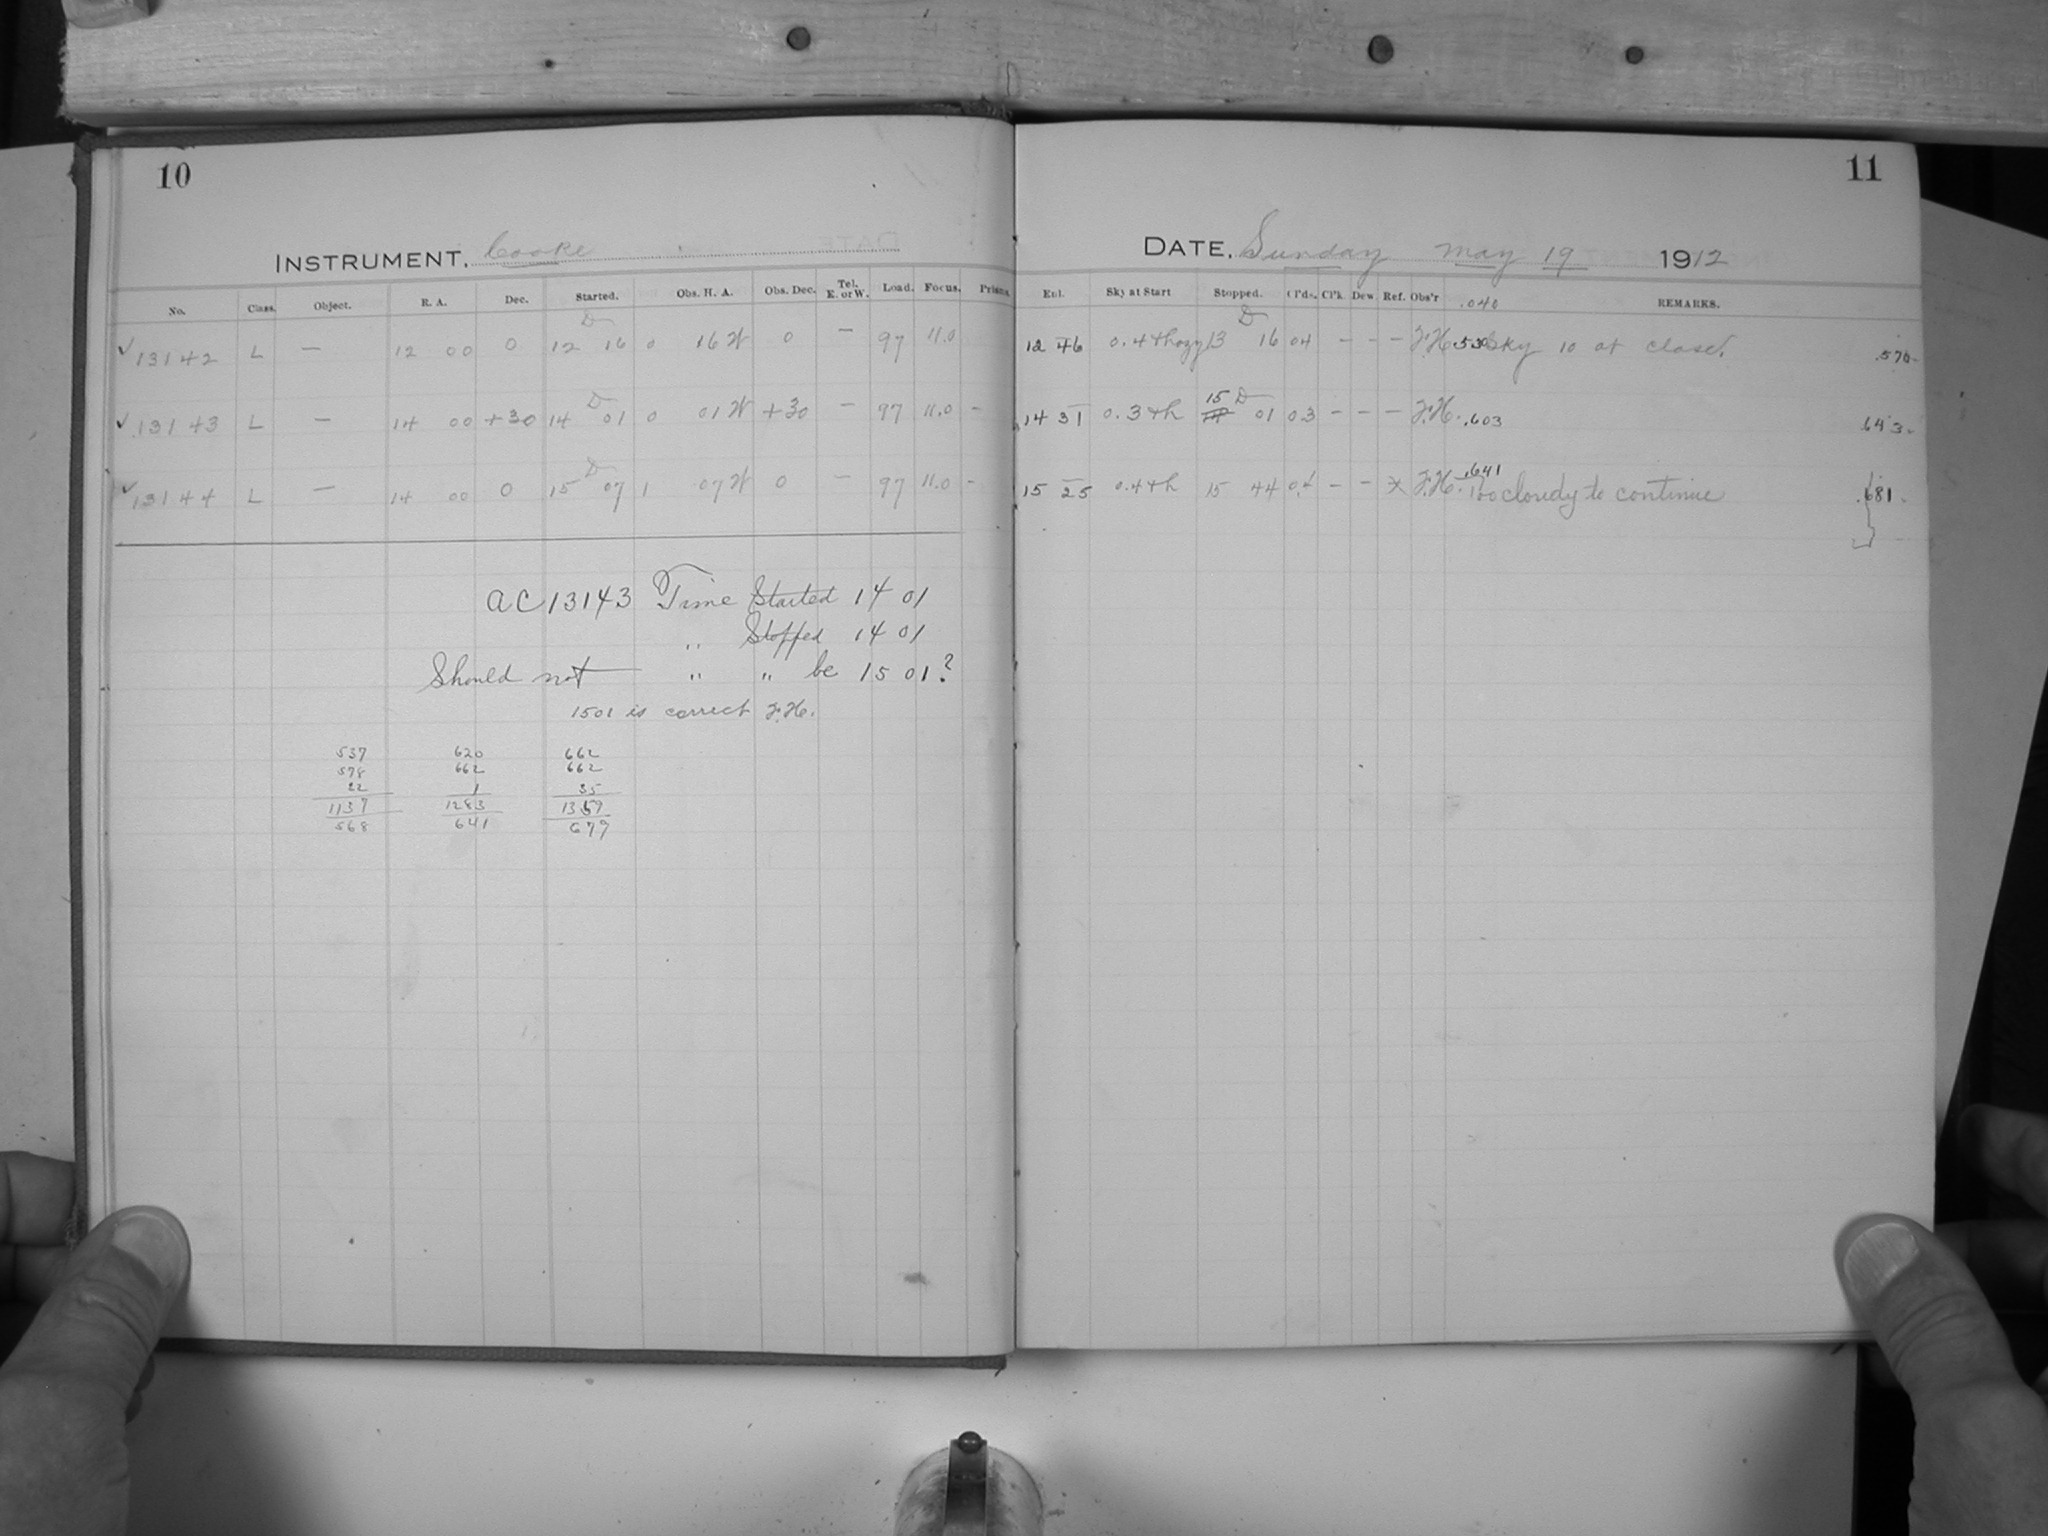 10
INSTRUMENT, Cooke
No. Class. Object. R. A. Dec. Started. Obs. H. A. Obs. Dec. Tel. E. or W. Load. Focus. Prisms.
D
✓ 13142 L — 12 00 0 12 16 0 16 W 0 — 97 11.0
D
✓ 13143 L — 14 00 +30 14 01 0 01 W +30 — 97 11.0 –
D
✓ 13144 L — 14 00 0 15 07 1 07 W 0 — 97 11.0 –
AC 13143 Time Started 14 01
" Stopped 14 01
Should not " " be 15 01?
1501 is correct F.H.
537 620 662
578 662 662
22 1 35
1137 1283 1359
568 641 679
11
DATE, Sunday May 19 1912
Ent. Sky at Start Stopped. Cl'ds. Cl'k Dew Ref. Obs'r .040 REMARKS.
D
12 46 0.4 th 13 16 04 – – – F.H. .530 Sky 10 at close.
15 D
14 31 0.3 th 14 01 03 – – – F.H. .603 .643
15 25 0.4 th 15 44 – – F.H. .641 Too cloudy to continue .681